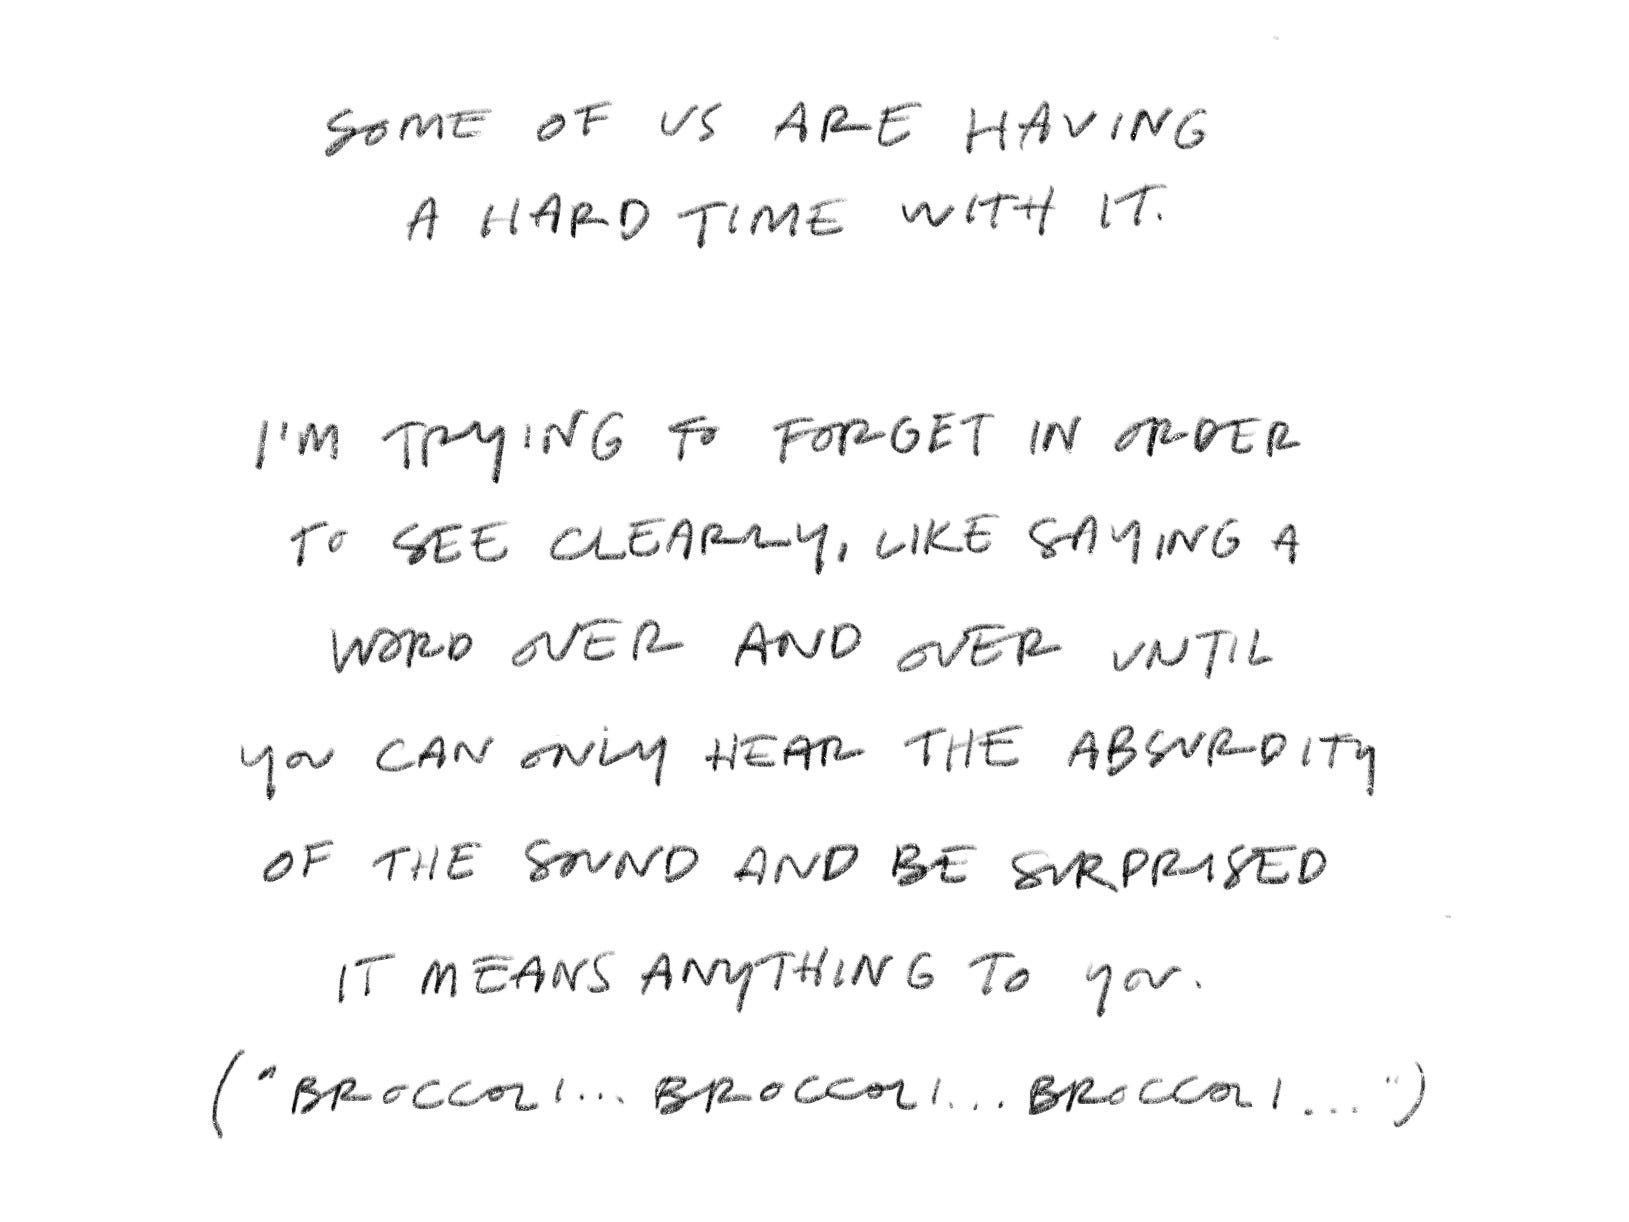 SOME OF US ARE HAVING
A HARD TIME WITH IT.
I'M TRYING TO FORGET IN ORDER
TO SEE CLEARLY, LIKE SAYING A
WORD OVER AND OVER UNTIL
YOU CAN ONLY HEAR THE ABSURDITY
OF THE SOUND AND BE SURPRISED
IT MEANS ANYTHING TO YOU.
("BROCCOLI... BROCCOLI... BROCCOLI...")